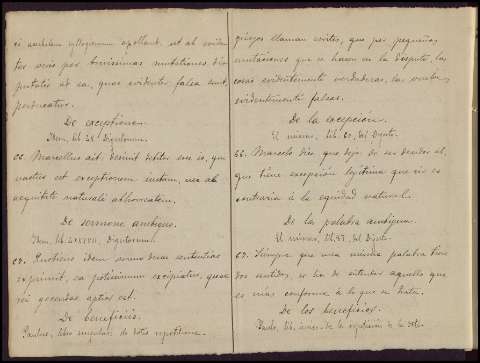 ut ab eviden-
ter veris per brevissimas mutationes dis-
putatio ad ea, quae evidenter falsa sunt,
perducatur.
De exceptione.
Idem, lib. 
66. Marcellus ait, desinit debitor esse is, qui
nactus est exceptionem iustam, nec ab
aequitate naturali abhorrentem.
De sermone ambiguo.
Idem, lib. Digestorum.
67. Quotiens idem sermo duas sententias
exprimit, ea potissimum excipiatur, quae
rei gerendae aptior est.
De beneficiis.
Paulus, libro singulari de dotis repetitione.
griegos llaman sorites, que por pequeñas
mutaciones que se hacen en la disputa, las
cosas evidentemente verdaderas, las vuelven
evidentemente falsas.
De la excepción.
El mismo, lib. del Digesto.
66. Marcelo dice que deja de ser deudor el
que tiene excepción legítima que no es
contraria á la equidad natural.
De la palabra ambigua.
El mismo, lib. del Digesto.
67. Siempre que una misma palabra tiene
dos sentidos, se ha de entender aquello que
es más conforme á lo que se trata.
De los beneficios.
Paulo, lib. de la repetición de la dote.